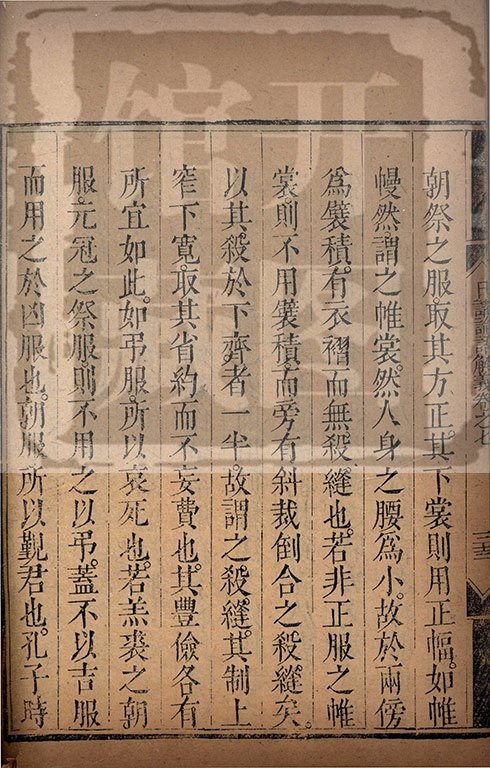 朝祭之服。取其方正。其下裳則用正幅。如帷
幔然謂之帷裳。然人身之腰為小。故於兩傍
為襞積。有衣褶而無殺縫也。若非正服之帷
裳。則不用襞積。而旁有斜裁倒合之殺縫矣。
以其。殺於下齊者一半。故謂之。殺縫。其制上
窄下寬。取其省約而不妄費也。其豐儉各有
所宜如此。如弔服。所以哀死也。若羔裘之朝
服。元冠之祭服。則不用之以弔。蓋不以吉服
而用之於凶服也。朝服所以覲君也。孔子時
日講論語解義卷之七